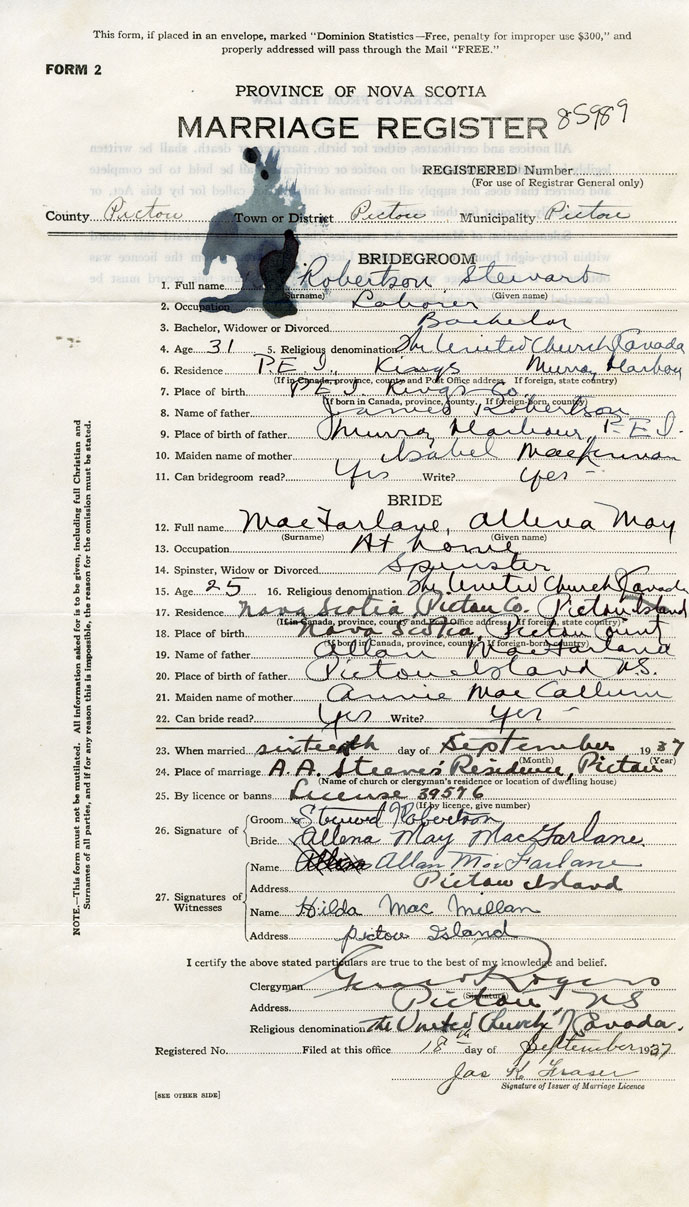 This form, if placed in an envelope, marked "Dominion Statistics—Free, penalty for improper use $300," and
properly addressed will pass through the Mail "FREE."
FORM 2
PROVINCE OF NOVA SCOTIA
MARRIAGE REGISTER 85989
REGISTERED Number
(For use of Registrar General only)
County Pictou Town or District Pictou Municipality Pictou
BRIDEGROOM
1. Full name Robertson Stewart
(Surname) (Given name)
2. Occupation Laborer
3. Bachelor, Widower or Divorced Bachelor
4. Age 31 5. Religious denomination The United Church Canada
6. Residence P.E.I., Kings Murray Harbour
(If in Canada, province, county and Post Office address. If foreign, state country)
7. Place of birth P.E.I. Kings Co.
(If born in Canada, province, county. If foreign-born, country)
8. Name of father James Robertson
9. Place of birth of father Murray Harbour, P.E.I.
10. Maiden name of mother Isabel MacKinnon
11. Can bridegroom read? Yes Write? Yes
BRIDE
12. Full name MacFarlane, Allena May
(Surname) (Given name)
13. Occupation At home
14. Spinster, Widow or Divorced Spinster
15. Age 25 16. Religious denomination The United Church Canada
17. Residence Nova Scotia Pictou Co. Pictou Island
(If in Canada, province, county and Post Office address. If foreign, state country)
18. Place of birth Nova Scotia, Pictou Count
(If born in Canada, province, county. If foreign-born country)
19. Name of father Allan MacFarland
20. Place of birth of father Pictou Island N.S.
21. Maiden name of mother Annie MacCallum
22. Can bride read? Yes Write? Yes
23. When married sixteenth day of September 1937
(Month) (Year)
24. Place of marriage A.A. Steeves' Residence, Pictou
(Name of church or clergyman's residence or location of dwelling house)
25. By licence or banns License 39576
(If by licence, give number)
26. Signature of Groom Steward Robertson
Bride Allena May MacFarlane
27. Signatures of Witnesses
Name Allan MacFarlane
Address Pictou Island
Name Hilda MacMillan
Address Pictou Island
I certify the above stated particulars are true to the best of my knowledge and belief.
Clergyman Rogers
(Signature)
Address Pictou NS
Religious denomination The United Church of Canada.
Registered No. Filed at this office 18th day of September 1937
Jas K Fraser
Signature of Issuer of Marriage Licence
[SEE OTHER SIDE]
NOTE.—This form must not be mutilated. All information asked for is to be given, including full Christian and
Surnames of all parties, and if for any reason this is impossible, the reason for the omission must be stated.